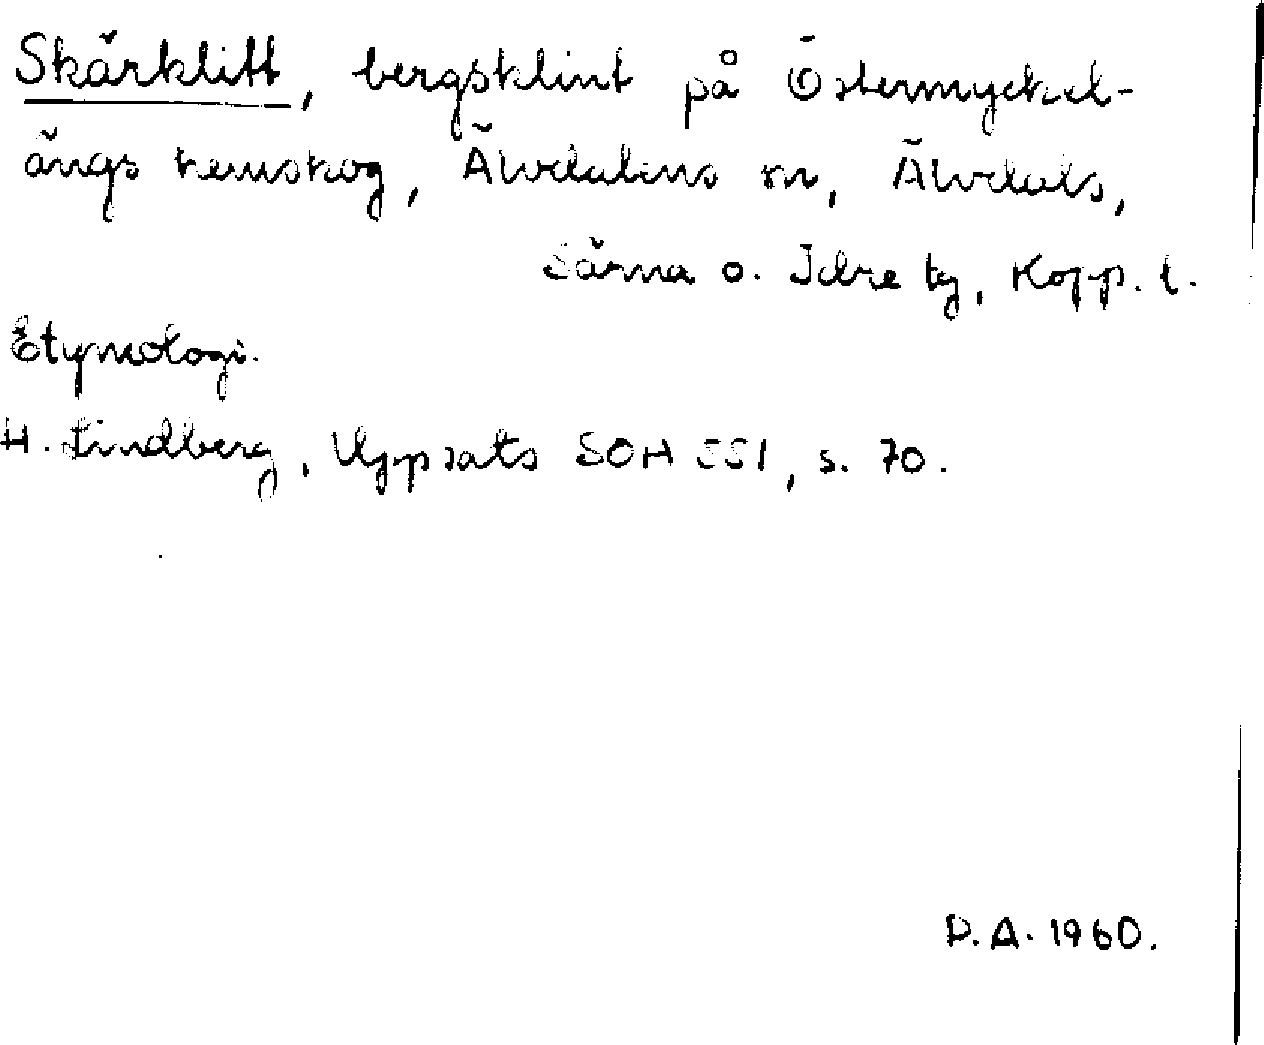 Skärklitt, bergsklint på Östermyckel-
ängs hemskog, Älvdalens sn, Älvdals,
Särna o. Idre tg, Kopp. l.
Etymologi.
H. Lindberg, Uppsats SOH 551, s. 70.
D.A. 1960.